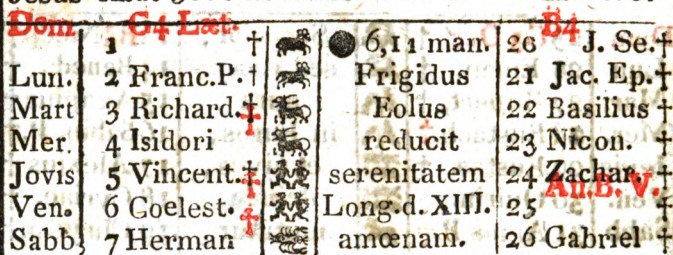 Dom 1 G4 Læt. † 6,11 man. 20 B4 J. Se. †
Lun. 2 Franc.P. † Frigidus 21 Jac. Ep. †
Mart 3 Richard. † Eolus 22 Basilius †
Mer. 4 Isidori reducit 23 Nicon. †
Jovis 5 Vincent. ‡ serenitatem 24 Zachar. †
Ven. 6 Coelest. ‡ Long.d. XIII. 25 An.B.V. †
Sabb 7 Herman amœnam. 26 Gabriel †